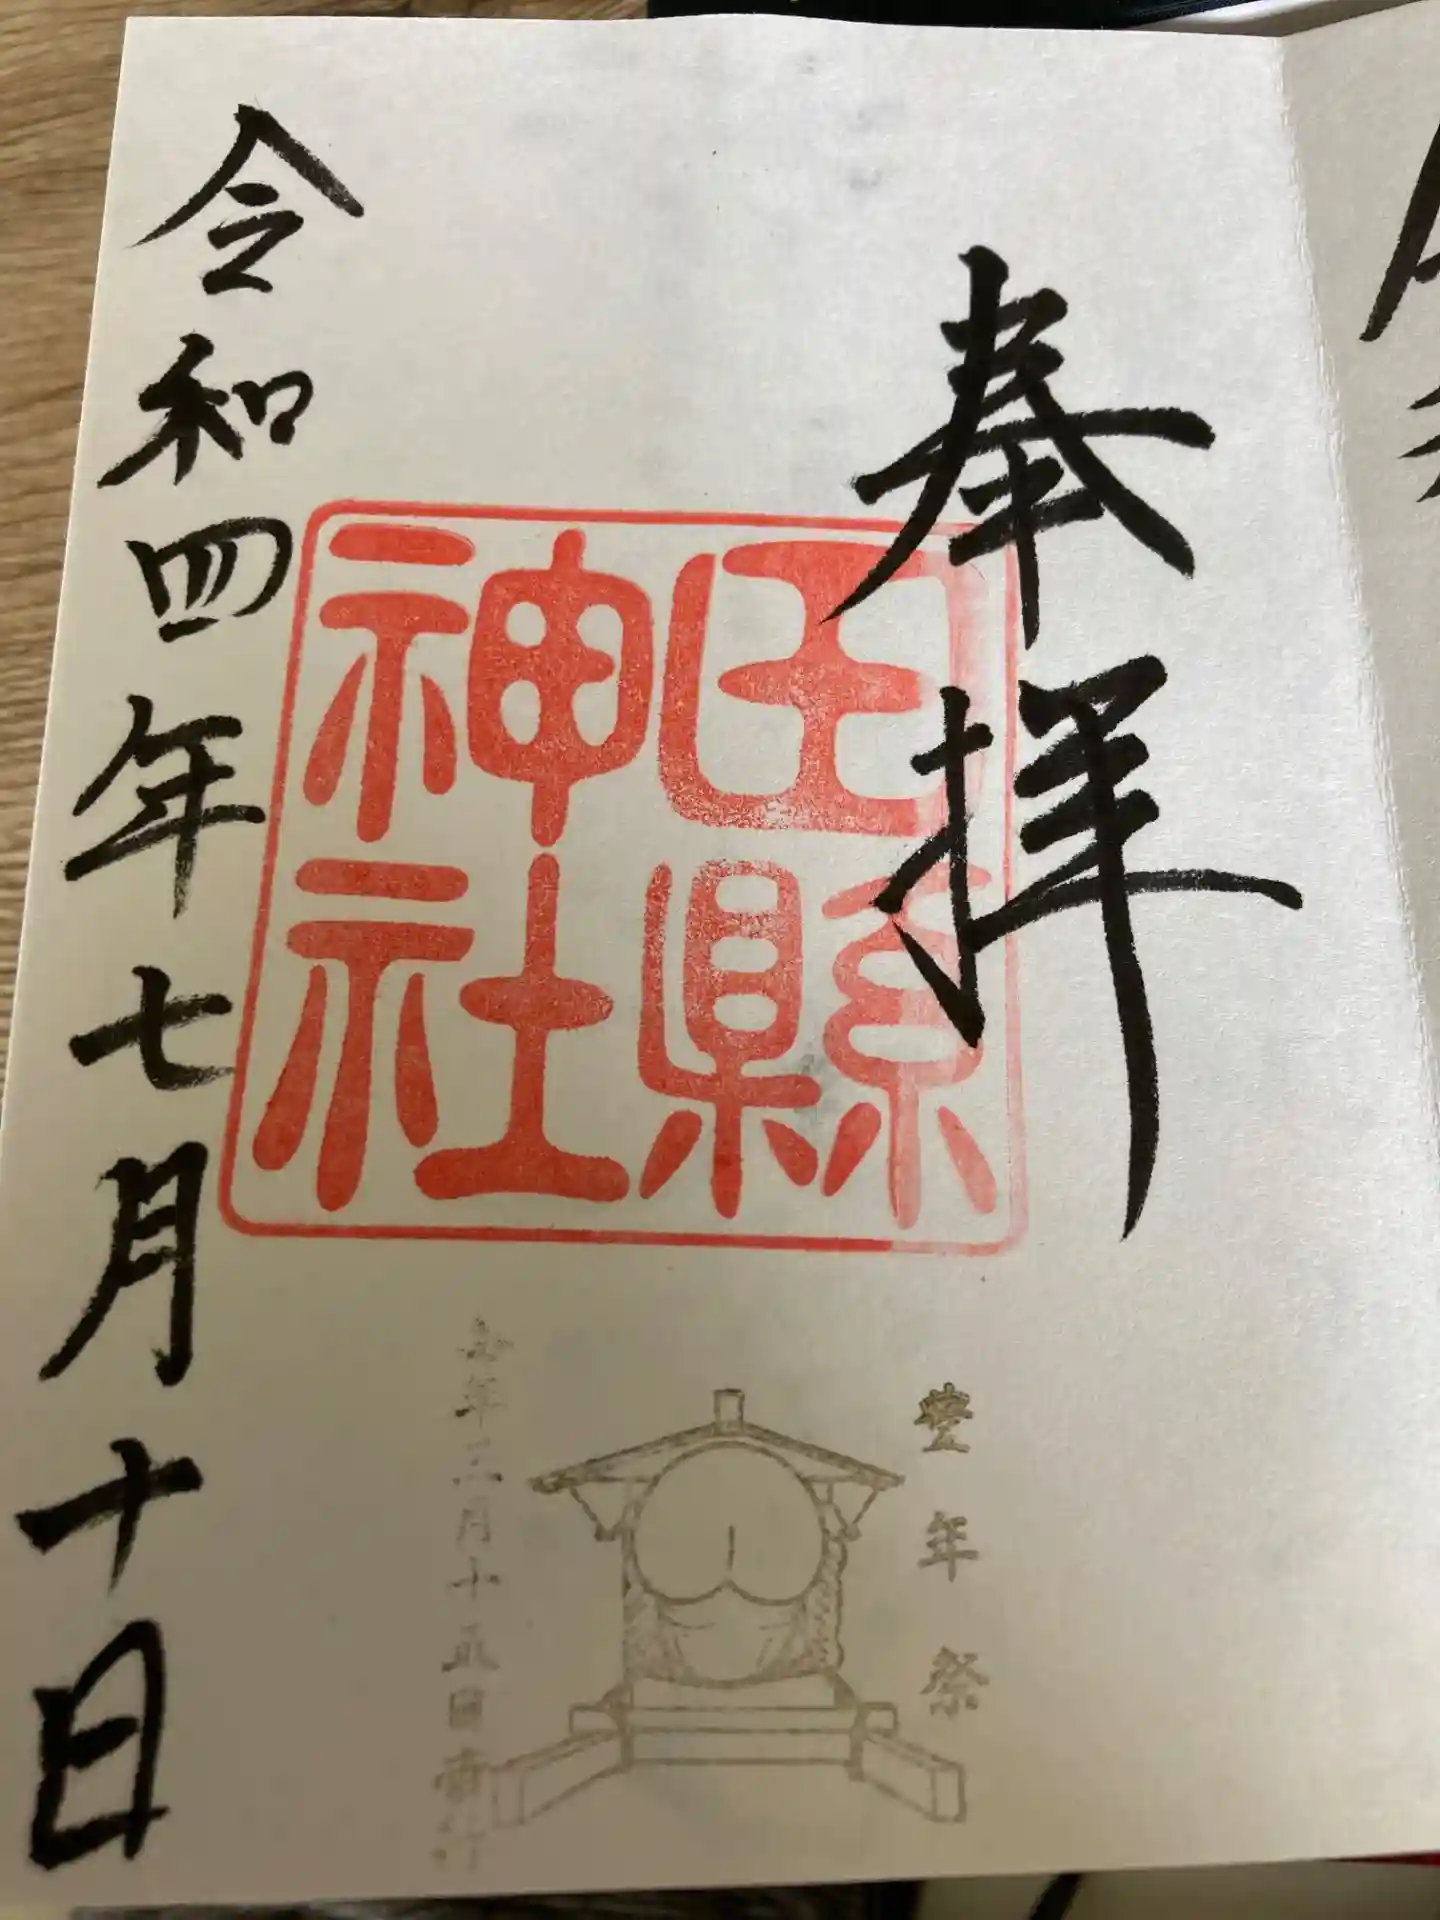 奉拝
田縣
神社
豊年祭
毎年三月十五日斎行
令和四年七月十日